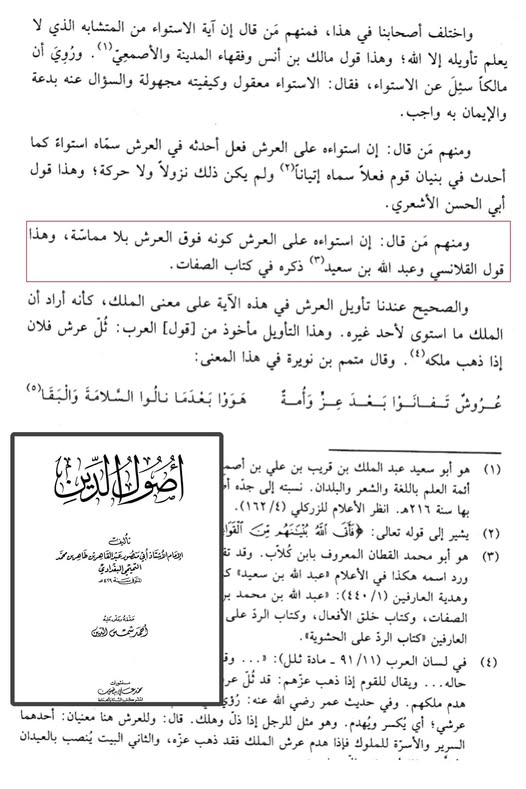 واختلف أصحابنا في هذا، فمنهم مَن قال إن آية الاستواء من المتشابه الذي لا
يعلم تأويله إلا الله؛ وهذا قول مالك بن أنس وفقهاء المدينة والأصمعيّ(١). ورُوِيَ أن
مالكاً سئِلَ عن الاستواء، فقال: الاستواء معقول وكيفيته مجهولة والسؤال عنه بدعة
والإيمان به واجب.
ومنهم مَن قال: إن استواءه على العرش فعل أحدثه في العرش سمّاه استواءً كما
أحدث في بنيان قوم فعلاً سماه إتياناً(٢) ولم يكن ذلك نزولاً ولا حركة؛ وهذا قول
أبي الحسن الأشعري.
ومنهم مَن قال: إن استواءه على العرش كونه فوق العرش بلا مماسّة، وهذا
قول القلانسي وعبد الله بن سعيد(٣) ذكره في كتاب الصفات.
والصحيح عندنا تأويل العرش في هذه الآية على معنى الملك، كأنه أراد أن
الملك ما استوى لأحد غيره. وهذا التأويل مأخوذ من [قول] العرب: ثُلّ عرش فلان
إذا ذهب ملكه(٤). وقال متمم بن نويرة في هذا المعنى:
عُروشٌ تَفانَوْا بَعْدَ عِزٍّ وَأُمةٌ هَوَوْا بَعْدَمَا نالُوا السَّلامَةَ وَالْبَقَا(٥)
(١) هو أبو سعيد عبد الملك بن قريب بن علي بن أصمع
أئمة العلم باللغة والشعر والبلدان. نسبته إلى جدّه
بها سنة ٢١٦هـ. انظر الأعلام للزركلي (١٦٢/٤).
(٢) يشير إلى قوله تعالى: ﴿فَأَتَى اللَّهُ بُنْيَنَهُم مِّنَ الْقَوَا
(٣) هو أبو محمد القطان المعروف بابن كُلاّب. وقد
ورد اسمه هكذا في الأعلام «عبد الله بن سعيد»
وهدية العارفين (٤٤٠/١): «عبد الله بن محمد
الصفات، وكتاب خلق الأفعال، وكتاب الردّ على
العارفين «كتاب الردّ على الحشوية».
(٤) في لسان العرب (٩١/١١ ـ مادة ثلل): «... وق
حاله... ويقال للقوم إذا ذهب عزّهم: قد ثُلّ
هدم ملكهم. وفي حديث عمر رضي الله عنه: رُؤِيَ
عرشي؛ أي يُكسر ويُهدم. وهو مثل للرجل إذا ذلّ وهلك. قال: وللعرش هنا معنيان: أحدهما
السرير والأسرّة للملوك فإذا هدم عرش الملك فقد ذهب عزّه، والثاني البيت يُنصب بالعيدان
أصول الدين
تأليف
الإمام الأستاذ أبي منصور عبد القاهر بن طاهر بن محمد
التميمي البغدادي
المتوفى سنة ٤٢٩هـ
أحمد شمس الدين
منشورات
محمد علي بيضون